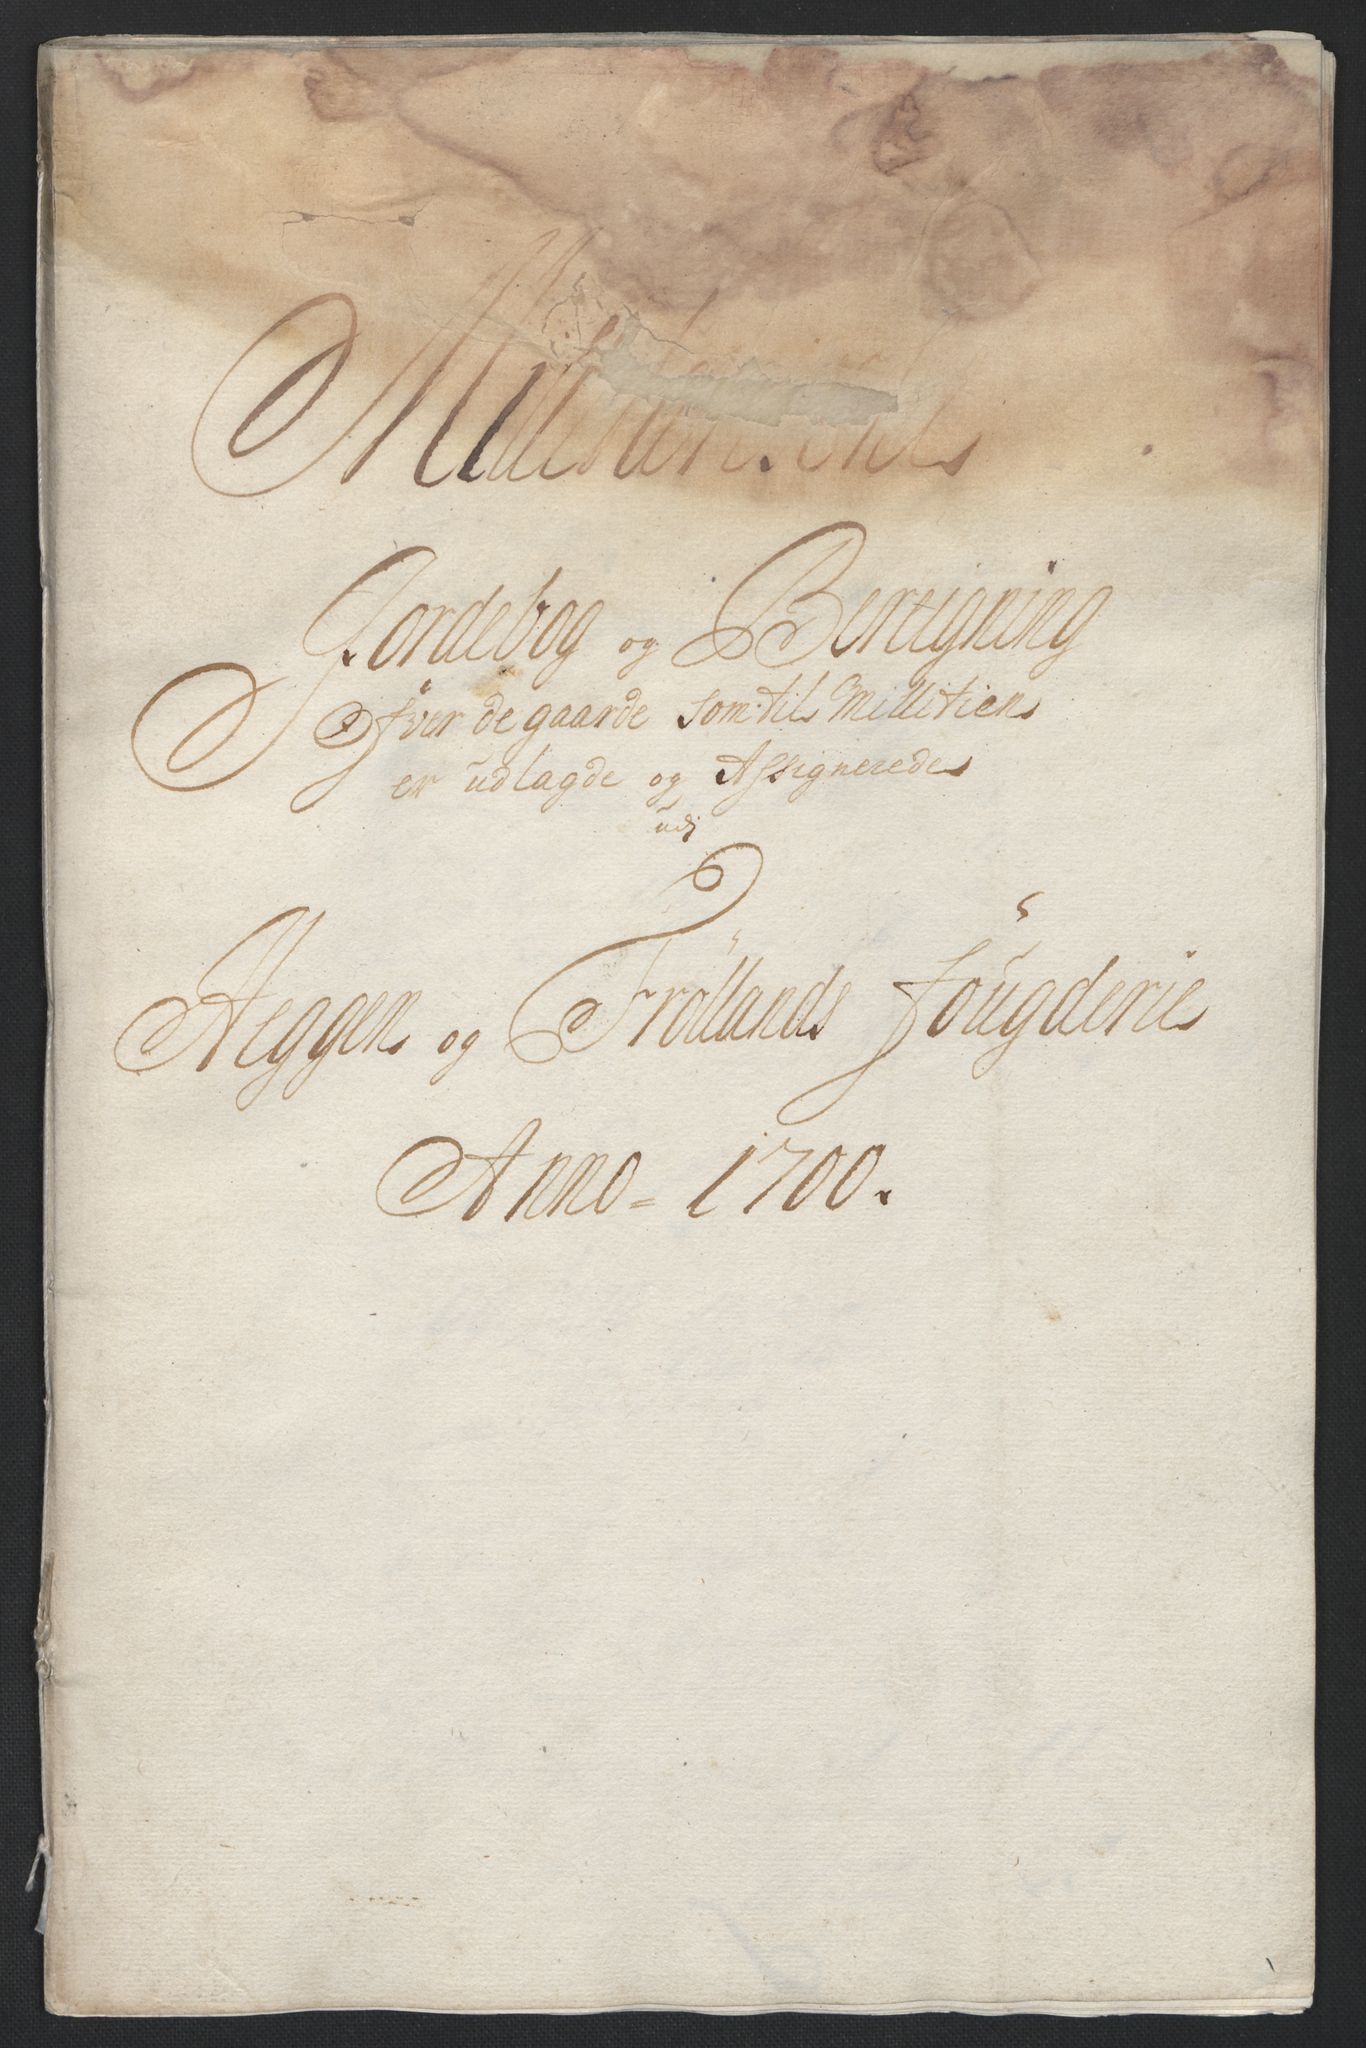 Jordebog og Bereigning
Över de gaarde som til Millitien
er udlagde og Assignerede
udj
Heggen og Fröllands fougderie
Anno = 1700.